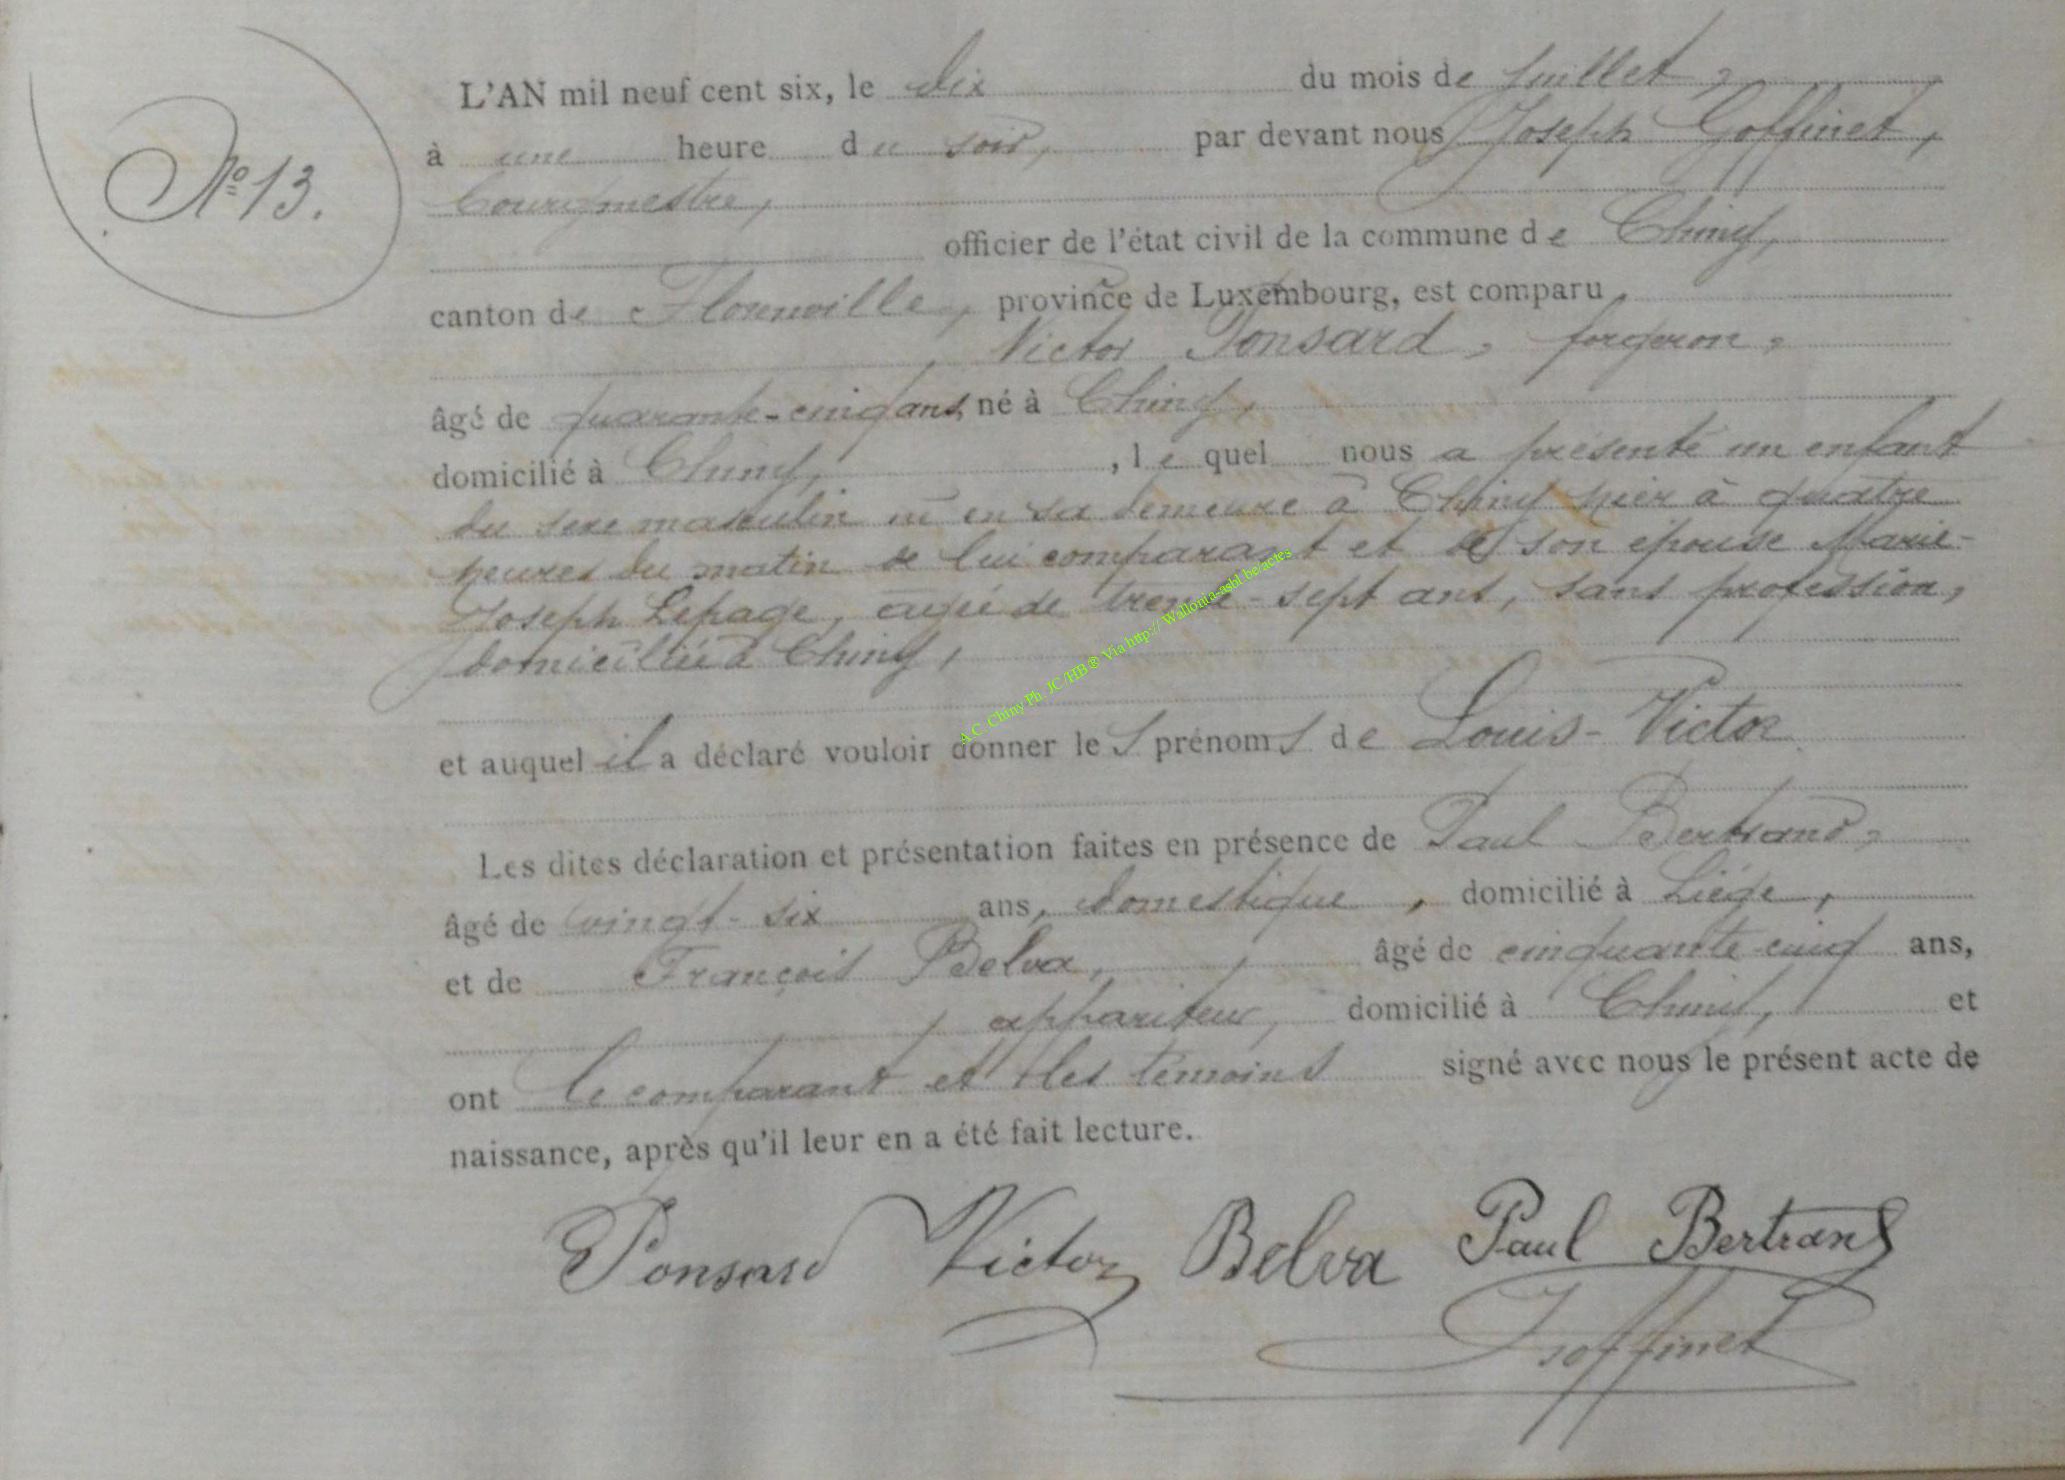 N° 13.
L'AN mil neuf cent six, le dix du mois de juillet,
à une heure du soir, par devant nous Joseph Goffinet,
bourgmestre,
officier de l'état civil de la commune de Chiny,
canton de Florenville, province de Luxembourg, est comparu,
Victor Ponsard, forgeron,
âgé de quarante-cinq ans, né à Chiny,
domicilié à Chiny, , lequel nous a présenté un enfant
du sexe masculin né en sa demeure à Chiny hier à quatre
heures du matin de lui comparant et de son épouse Marie-
Joseph Lepage, âgée de trente-sept ans, sans profession,
domiciliée à Chiny,
et auquel il a déclaré vouloir donner les prénoms de Louis-Victor
Les dites déclaration et présentation faites en présence de Paul Bertrand,
âgé de vingt-six ans, domestique, domicilié à Liége,
et de François Belva, âgé de cinquante-cinq ans,
appariteur, domicilié à Chiny, et
ont le comparant et les témoins signé avec nous le présent acte de
naissance, après qu'il leur en a été fait lecture.
Ponsard Victor Belva Paul Bertrand
JGoffinet
A.C. Chiny Ph. JC/HB® Via http:// Wallonia-asbl.be/actes